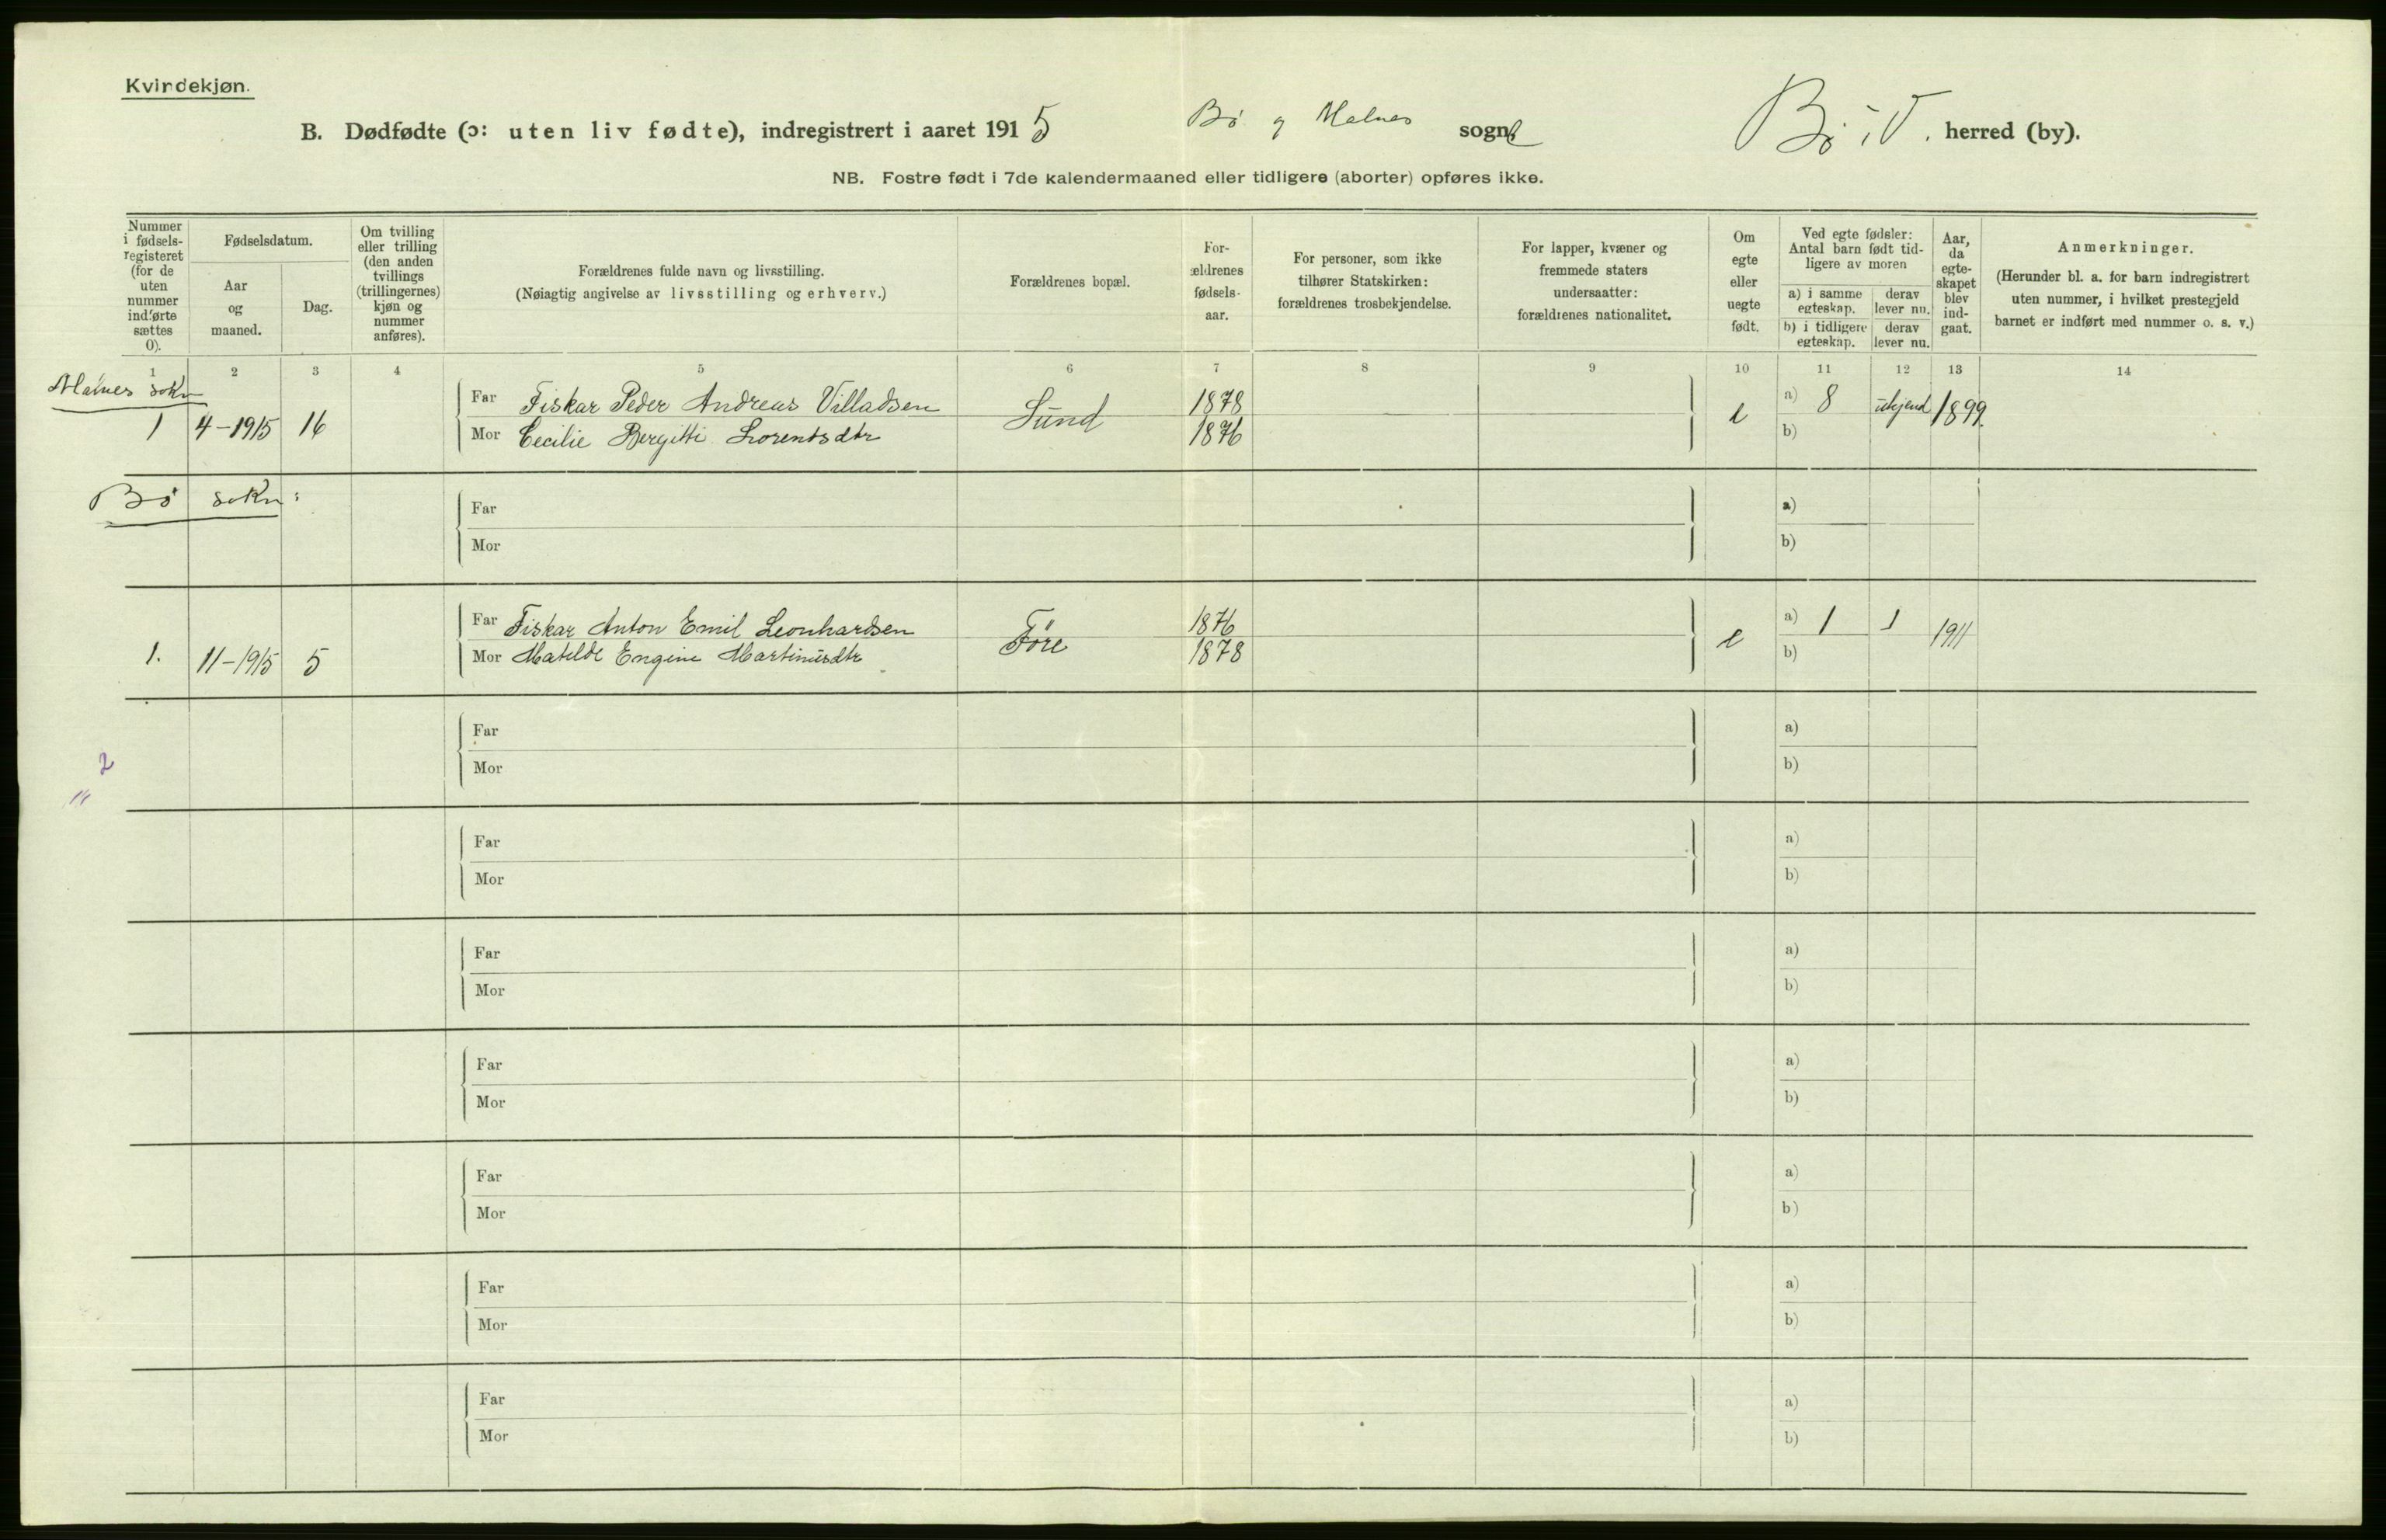 Kvindekjøn.
B. Dødfødte (ɔ: uten liv fødte), indregistrert i aaret 1915 Bö og Malnes sogne Bö i V. herred (by).
NB. Fostre født i 7de kalendermaaned eller tidligere (aborter) opføres ikke.
Nummer i fødsels-registeret (for de uten nummer indførte sættes 0).
Fødselsdatum.
Aar og maaned.
Dag.
Om tvilling eller trilling (den anden tvillings (trillingernes) kjøn og nummer anføres).
Forældrenes fulde navn og livsstilling.
(Nøiagtig angivelse av livsstilling og erhverv.)
Forældrenes bopæl.
For-ældrenes fødsels-aar.
For personer, som ikke tilhører Statskirken: forældrenes trosbekjendelse.
For lapper, kvæner og fremmede staters undersaatter: forældrenes nationalitet.
Om egte eller uegte født.
Ved egte fødsler: Antal barn født tid-ligere av moren
a) i samme egteskap.
derav lever nu.
b) i tidligere egteskap.
derav lever nu.
Aar, da egte-skapet blev ind-gaat.
Anmerkninger.
(Herunder bl. a. for barn indregistrert uten nummer, i hvilket prestegjeld barnet er indført med nummer o. s. v.)
1 2 3 4 5 6 7 8 9 10 11 12 13 14
Malnes sokn
1 4-1915 16 Far Fiskar Peder Andreas Villadsen Sund 1878 e a) 8 ukjend 1899.
Mor Cecilie Bergitti Lorentsdtr 1876 b)
Bö sokn:
Far a)
Mor b)
1. 11-1915 5 Far Fiskar Anton Emil Leonhardsen Före 1876 e a) 1 1 1911
Mor Matilde Engine Martinusdtr 1878 b)
Far a)
2
Mor b)
"
Far a)
Mor b)
Far a)
Mor b)
Far a)
Mor b)
Far a)
Mor b)
Far a)
Mor b)
Far a)
Mor b)